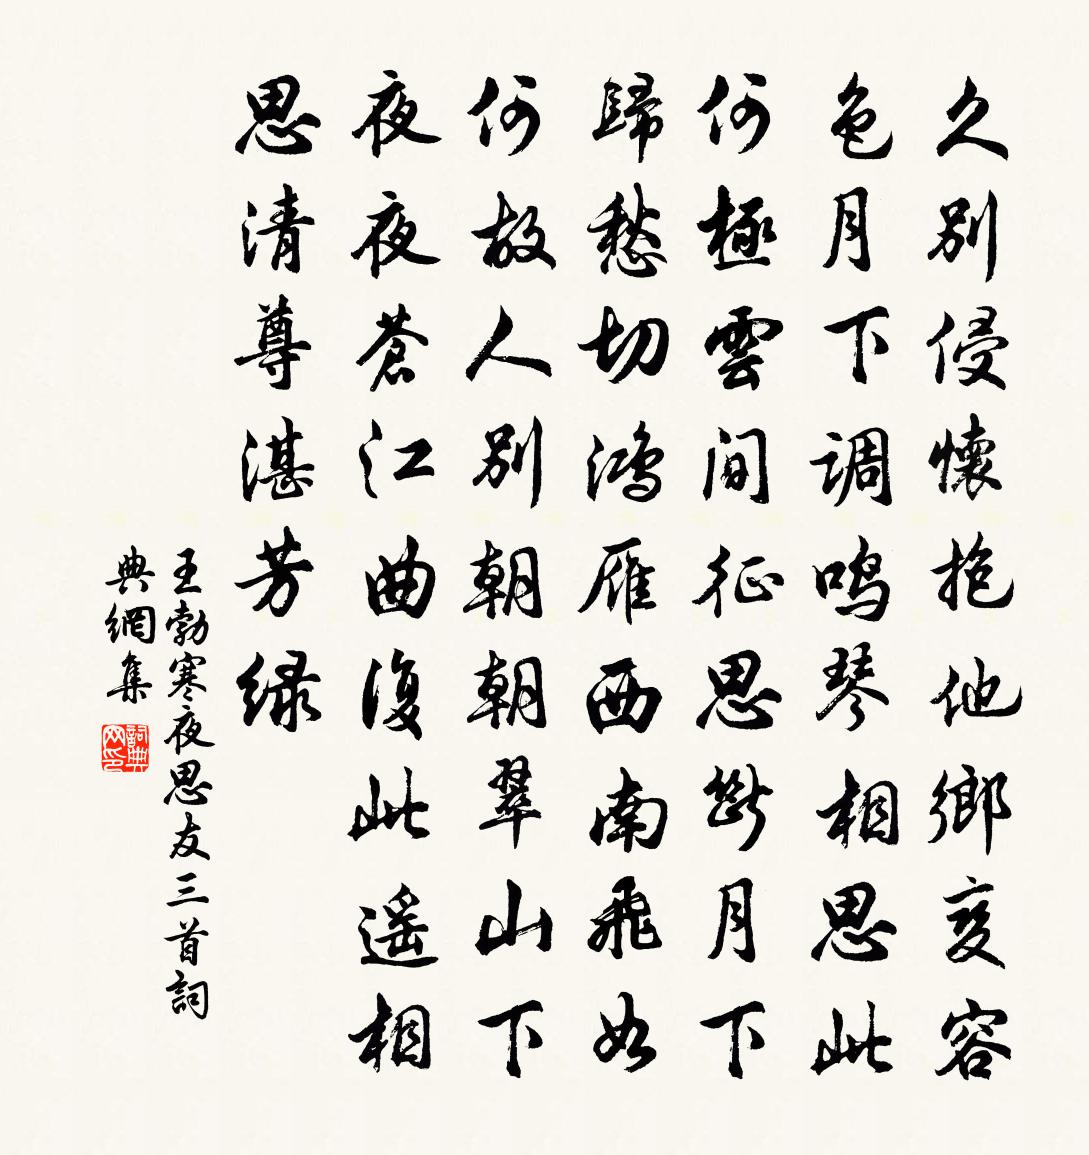 久別侵懷抱他鄉变容
色月下调鸣琴相思此
何極雲间征思斷月下
歸愁切鸿雁西南飛如
何故人別朝朝翠山下
夜夜蒼江曲復此遥相
思清尊湛芳绿
王勃寒夜思友三首詞
典網集
詞典网印